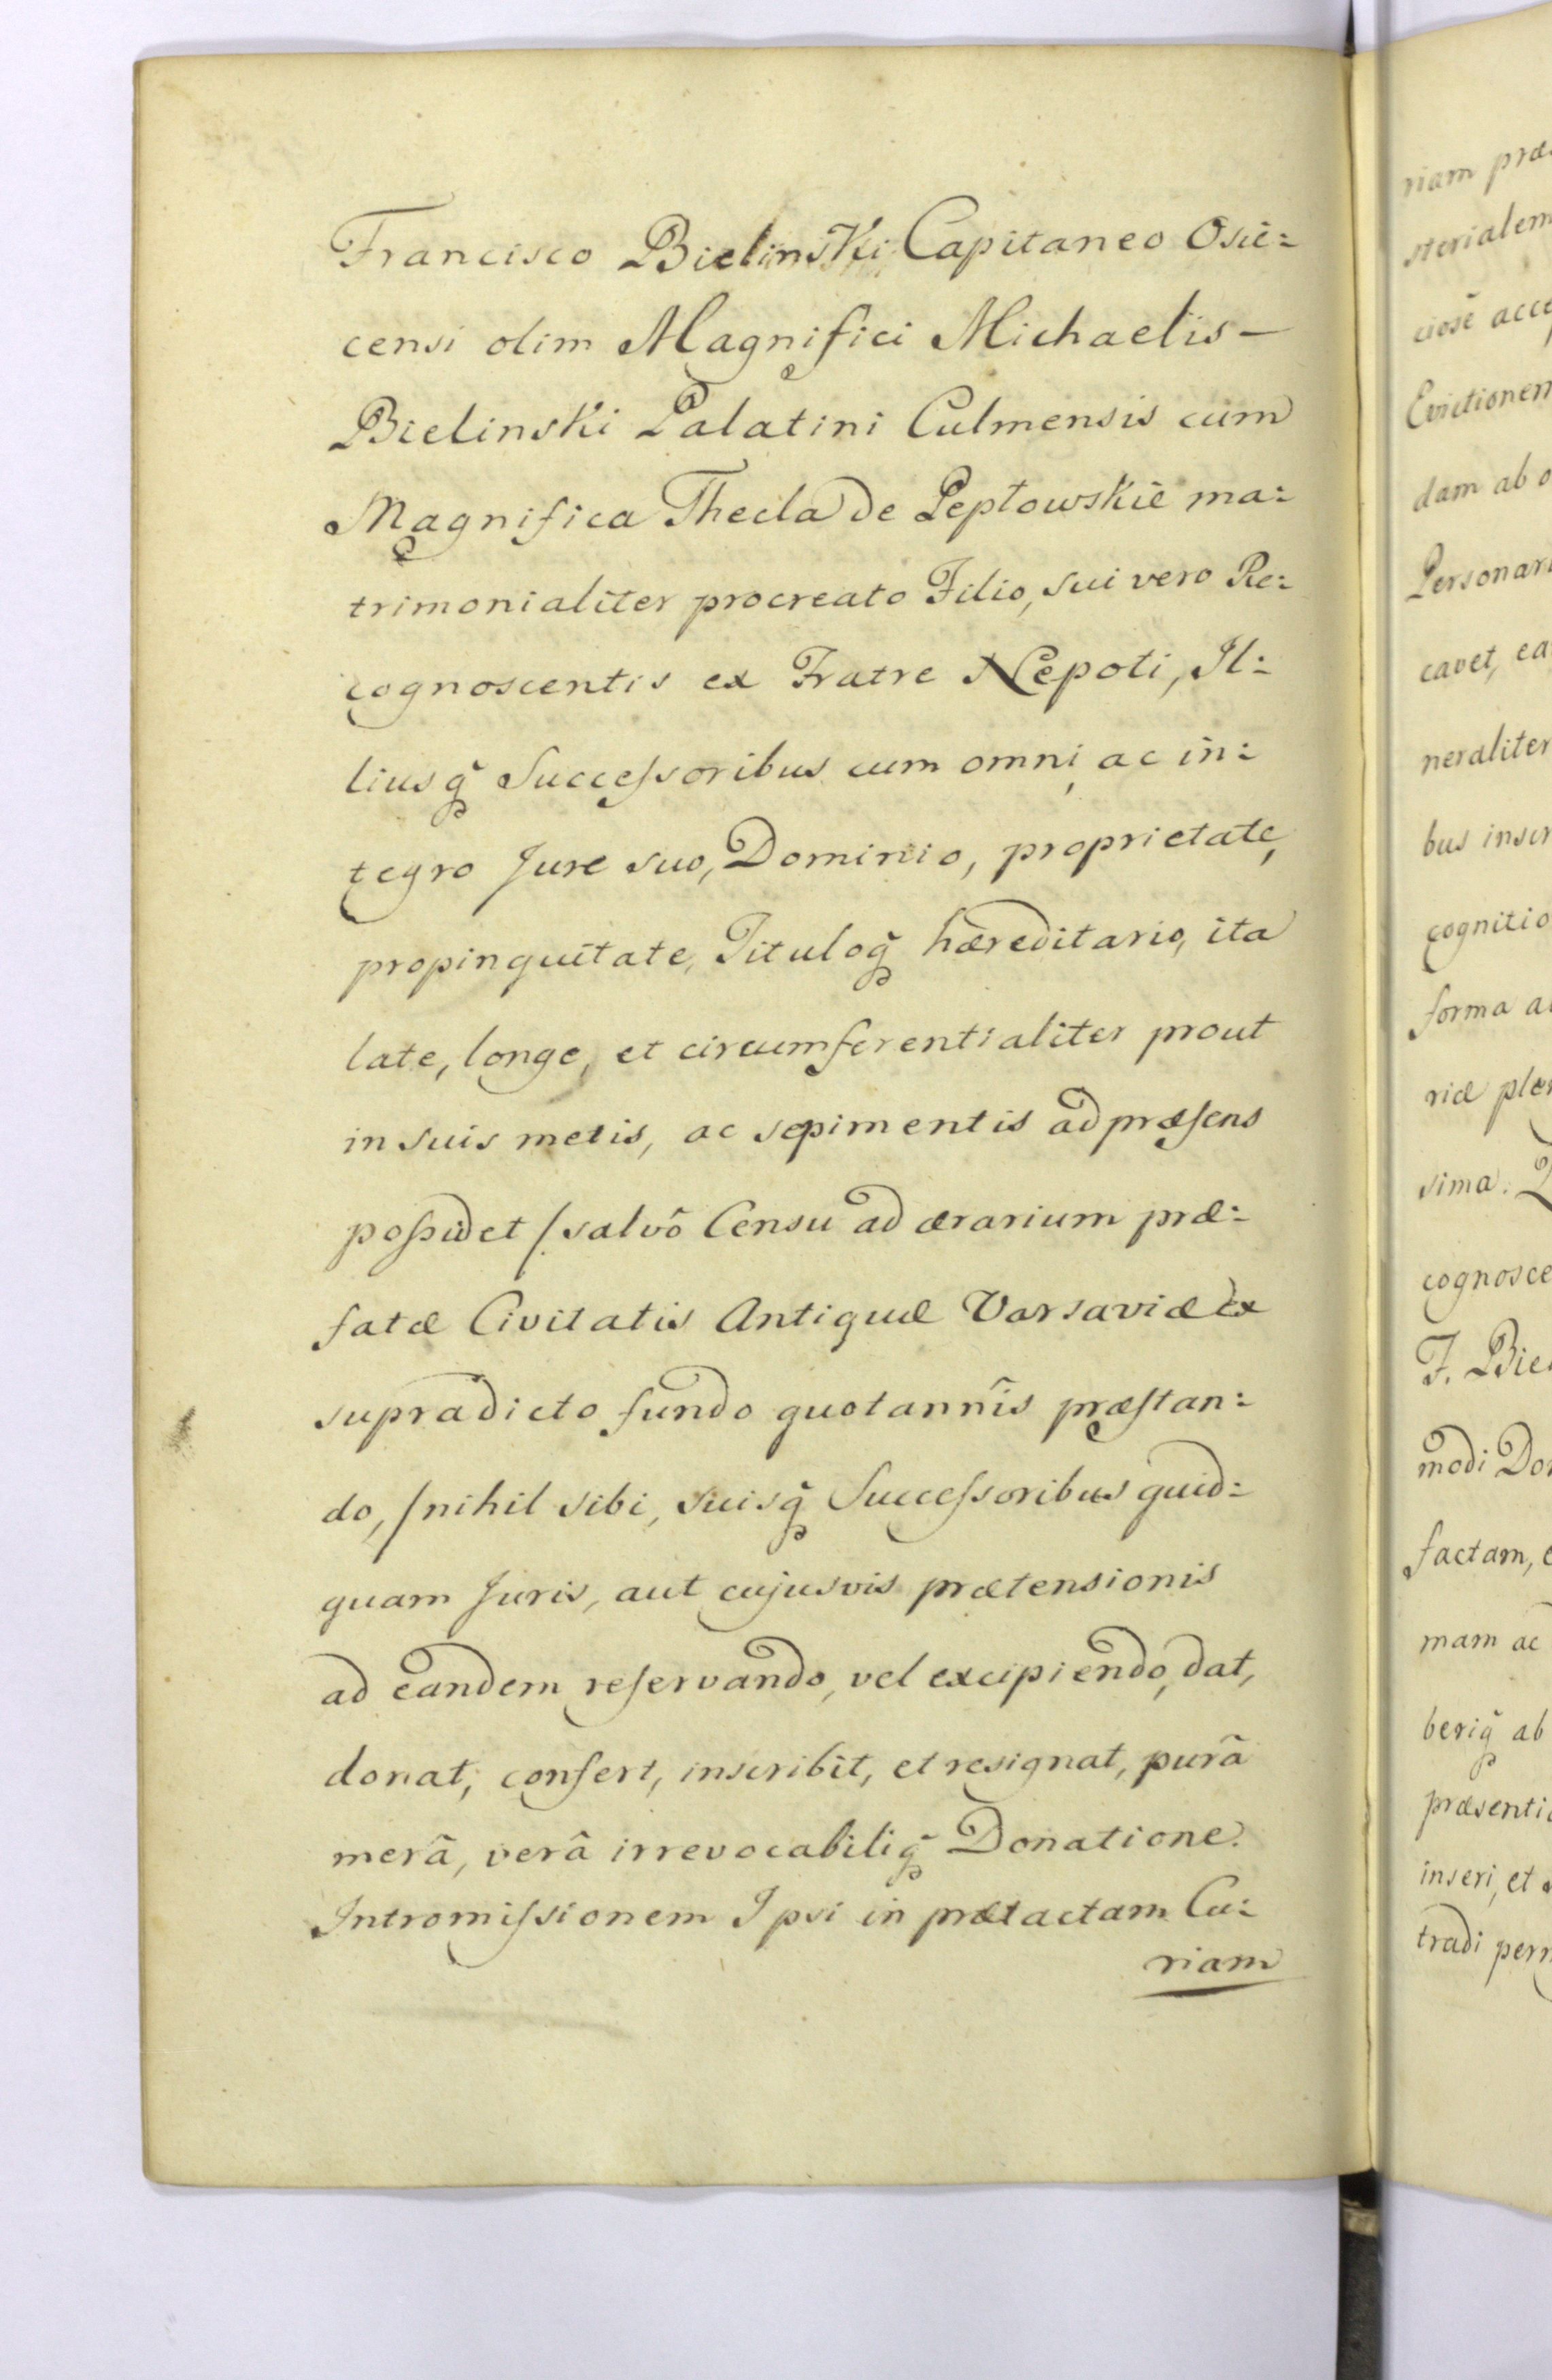 Francisco Bielinski Capitaneo Osie=
censi olim Magnifici Michaelis —
Bielinski Palatini Culmensis cum
Magnifica Thecla de Peptowskie ma=
trimonialiter procreato Filio, sui vero Re=
cognoscentis ex Fratre Nepoti, Il=
liusq̃ Succeſsoribus cum omni, ac in=
tegro Jure suo, Dominio, proprietate,
propinquitate, Tituloq̃ hæreditario, ita
late, longe, et circumferentialiter prout
in suis metis, ac sepimentis ad præſens
poſsidet /salvô Censu ad ærarium præ=
fatæ Civitatis Antiquæ Varsaviæ Ex
supradicto fundo quotannîs præſtan=
do,/ nihil sibi, suisq̃ Succeſsoribus quid=
quam Juris, aut cujusvis prætensionis
ad eandem reſervando, vel excipiendo, dat,
donat, confert, inscribit, et resignat, purâ
merâ, verâ irrevocabiliq̃ Donatione.
Intromiſsionem Ipsi in prætactam Cu=
riam
riam præ
sterialem
ciosê acce
Evictionem
dam ab o
Personar
cavet, ea
neraliter
bus inscr
cognitio
forma a
riæ plen
sima.
cognosce
F. Biel
modi Do
factam, e
mam ac
beriq̃ ab
præsenti
inseri, et
tradi perm